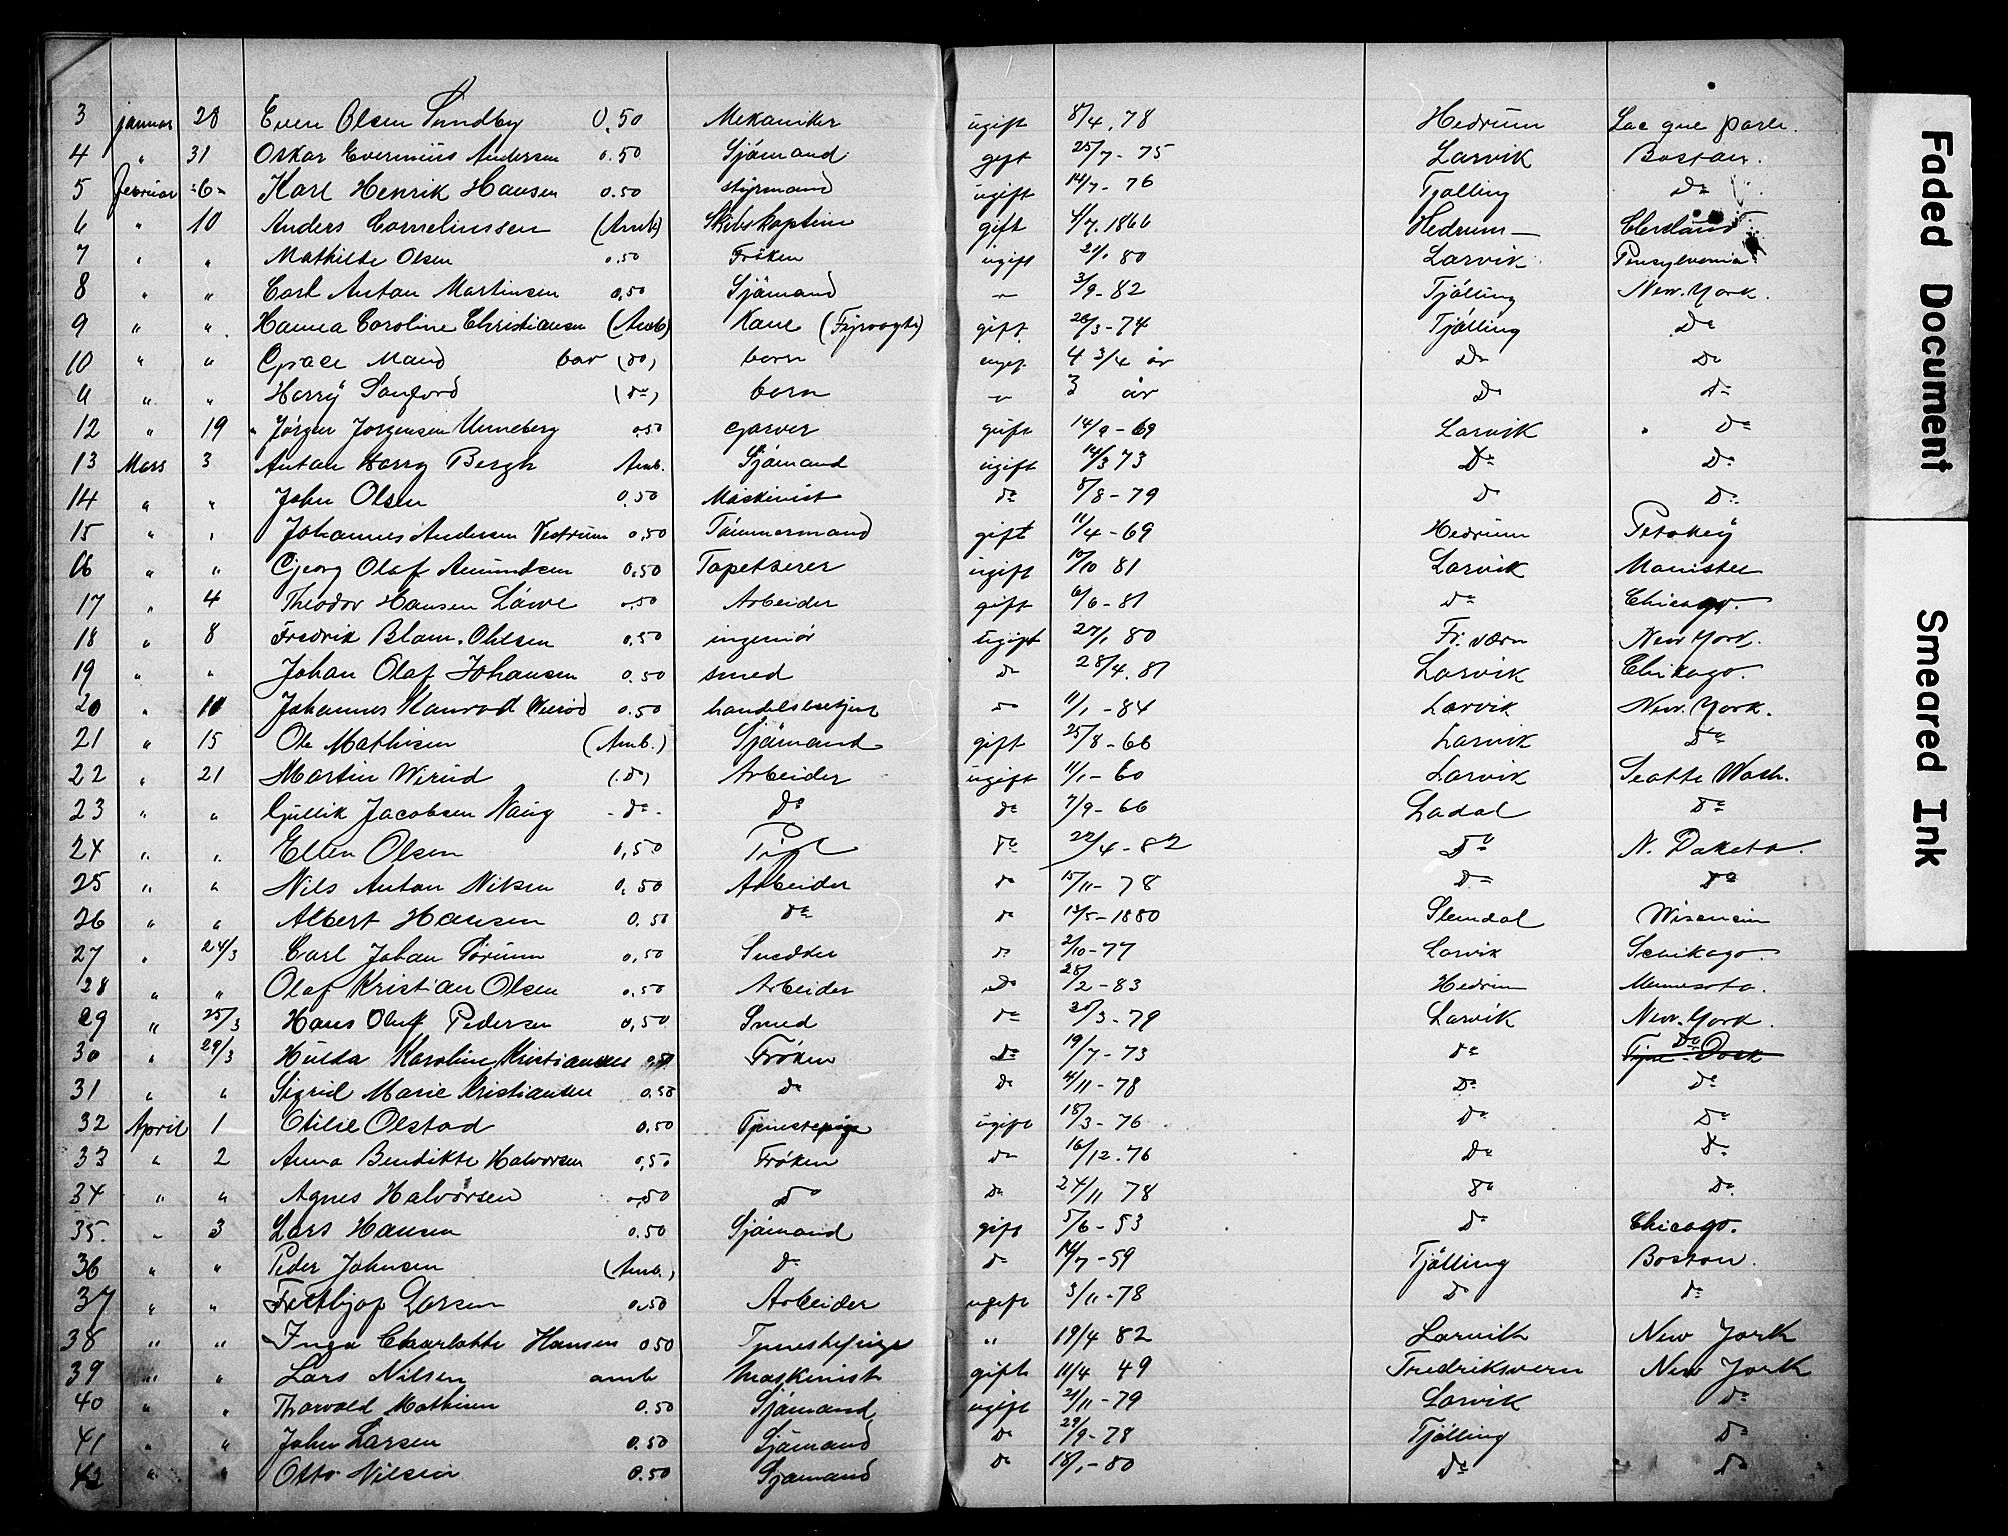 3 januar 28 Even Olsen Sundby 0,50 Mekaniker ugift 8/4. 78 Hedrum Lac que parle.
4 " 31 Oskar Evernius Andersen 0.50 Sjömand gift 25/7 - 75 Larvik Boston.
5 februar -6- Karl Henrik Hansen 0.50 styrmand ugift 14/7 - 76 Tjølling Do
6 " 10 Anders Corneliussen (Amb) Skibskaptein gift 4/7. 1866 Hedrum Cleveland
7 " " Mathilde Olsen 0.50 Frøken ugift 21/1 80 Larvik Pensylvania
8 " " Carl Anton Martinsen 0,50 Sjömand " 3/9 - 82 Tjölling New. York.
9 " " Hanna Caroline Christiansen (Amb) Kone (Fyrvogts) gift. 28/3 - 74 Tjölling Do
10 " " Grace Maud bar (do) born ugift 4 3/4 år Do Do
11 " " Harry Sanford (do) born " 3 år Do do
12 " 19 Jørgen Jørgensen Unneberg 0.50 garver gift 14/9 - 69 Larvik Do
13 Mars 3 Anton Harry Bergh Amb. Sjömand ugift 14/3 73 Do Do
14 " " John Olsen 0.50 Maskinist do 8/8 - 79 Do Do
15 " " Johannes Andersen Vestrum 0,50 Tömmermand gift 11/4 - 69 Hedrum Petoskey
16 " " Georg Olaf Amundsen 0,50 Tapetserer ugift 10/10 81 Larvik Manistee
17 " 4 Theodor Hansen Löwe 0,50 Arbeider gift 6/6 - 81 Do Chicago.
18 " 8 Fredrik Blom. Ohlsen 0,50 ingeniör ugift 27/1 80 Fr. værn New York.
19 " " Johan Olaf Johansen 0.50 smed do 28/4. 81 Larvik Chikago.
20 " 10 Johannes Konrad 0.50 handelsbetjent do 11/1 - 84 Larvik New. York.
21 " 15 Ole Mathisen (Amb.) Sjömand gift 25/8 - 66 Larvik Do
22 " 21 Martin Werud (do) Arbeider ugift 11/1 - 60 Larvik Seatte Wash.
23 " " Gullik Jacobsen Naug - do - Do do 7/9 - 66 Ladal Do
24 " " Ellen Olsen 0,50 Pige Do 22/4 - 82 Do N. Dakota.
25 " " Nils Anton Nilsen 0,50 Arbeider do 15/11 - 78 Do Do
26 " " Albert Hansen 0.50 do do 13/5 - 1880 Slemdal Wisconsin
27 " 24/3 Carl Johan Sørum 0,50 Snedker do 2/10 - 77 Larvik Schikago.
28 " " Olaf Kristian Olsen 0,50 Arbeider Do 28/2 - 83 Hedrum Mennesota.
29 " 25/3 Hans Oluf Pedersen 0,50 Smed do 30/3 - 79 Larvik New. York.
30 " 29/3 Hulda Karoline Kristiansen 0,50 Frøken Do 19/7 - 73 Do Do
31 " " Sigrid Marie Kristiansen 0,50 do Do 4/11 - 78 Do Do
32 April 1 Otilie Olstad 0.50 Tjenestepige ugift 18/3 - 76 Do Do
33 " 2 Anna Bendikte Halvorsen 0,50 Frøken Do 16/12. 76 Do Do
34 " " Agnes Halvorsen 0,50 do Do 24/11 78 Do Do
35. " 3 Lars Hansen 0.50 Sjömand gift 5/6 - 53 Do Chicago.
36 " " Peder Johnsen (Amb.) Do do 14/7 - 59 Tjölling Boston.
37 " " Larsen 0.50 Arbeider ugift 3/11 - 78 Do Do
38 " " Inga Charlotte Hansen 0.50 Tjenestepige " 19/4 82 Larvik New York
39 " " Lars Nilsen amb Maskinist gift 11/4 49 Fredriksvern New York
40 " " Thorvald Mathisen 0.50 Sjömand ugift 21/11 - 79 Larvik Do
41 " " John Larsen 0.50 Sjömand Do 29/9 - 78 Tjölling Do
42 " " Otto Nilsen 0.50 Sjömand Do 18/1 - 80 Do Do
Faded Document
Smeared Ink